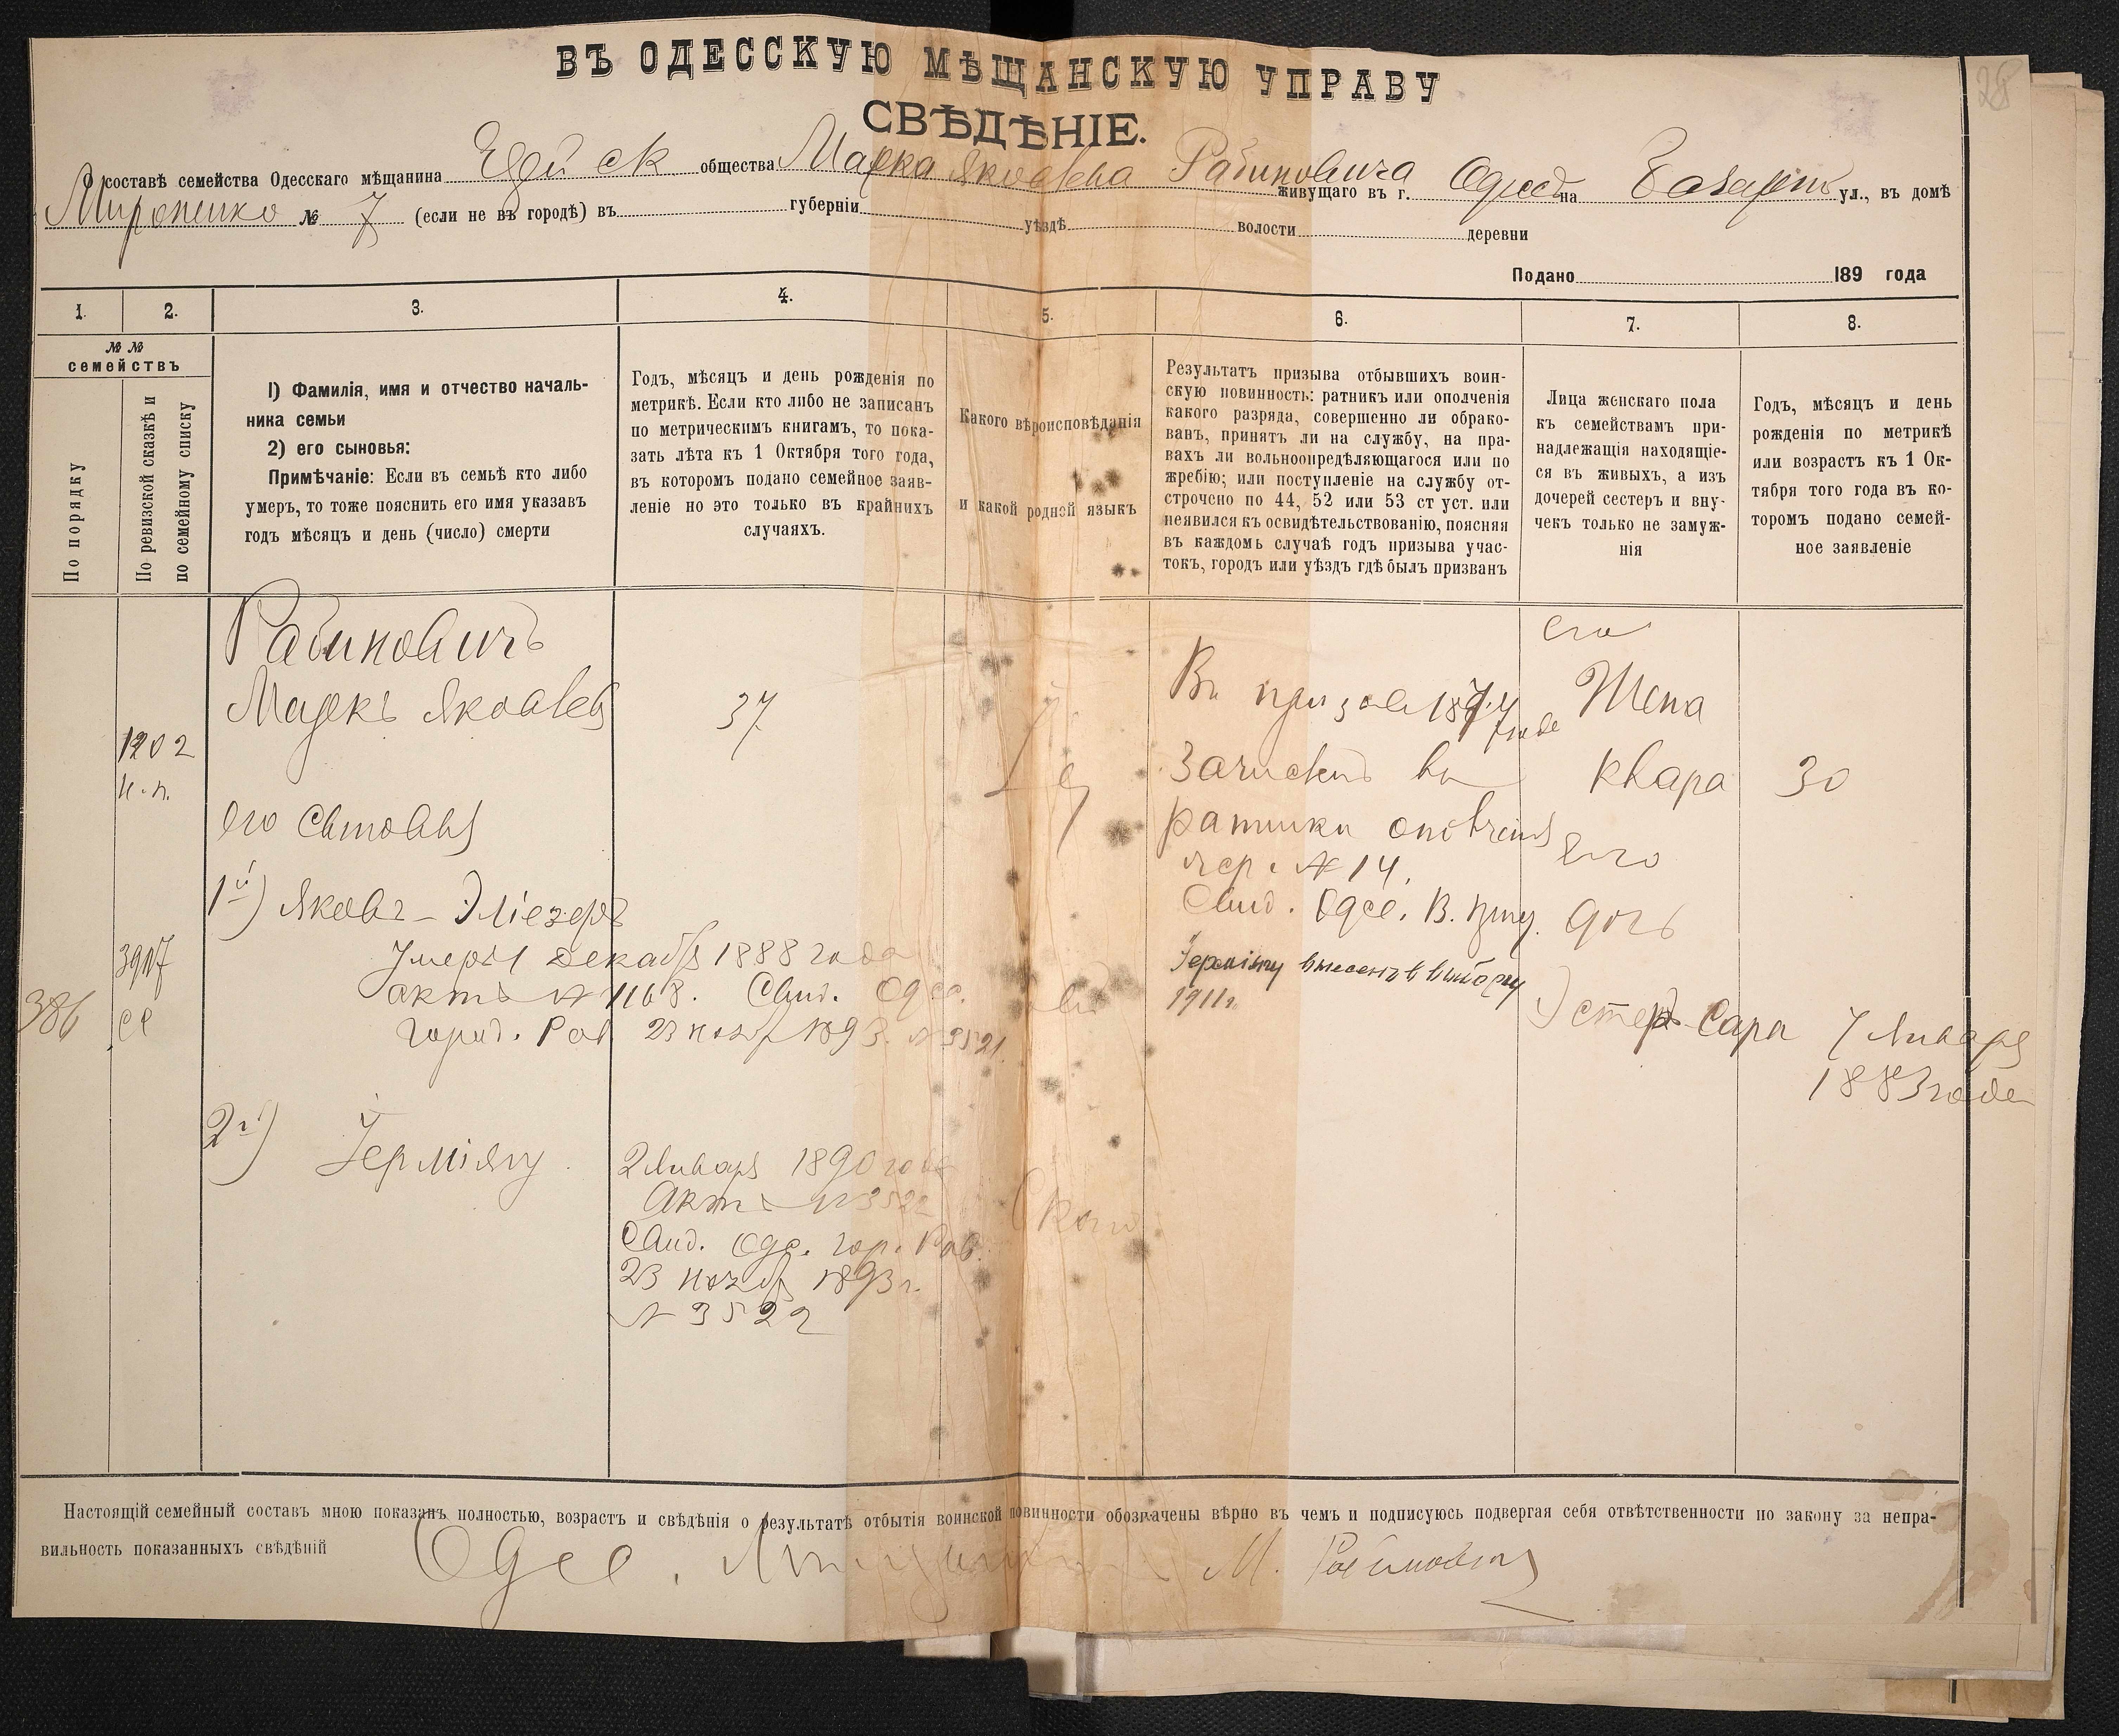 28
ВЪ ОДЕССКУЮ МѢЩАНСКУЮ УПРАВУ
СВѢДѢНІЕ.
О составѣ семейства Одесскаго мѣщанина общества Марка Яковлева Рабиновича живущаго въ г. Одессѣ на Базарной ул., въ домѣ
Мироненко № 7 (если не въ городѣ) въ губерніи уѣздѣ волости деревни
Подано 189 года
1. 2. 3. 4. 5. 6. 7. 8.
№ № семействъ
По порядку
По ревизской сказкѣ и по семейному списку
1) Фамилія, имя и отчество началь-
ника семьи
2) его сыновья:
Примѣчаніе: Если въ семьѣ кто либо
умеръ, то тоже пояснить его имя указавъ
годъ мѣсяцъ и день (число) смерти
Годъ, мѣсяцъ и день рожденія по
метрикѣ. Если кто либо не записанъ
по метрическимъ книгамъ, то пока-
зать лѣта къ 1 Октября того года,
въ которомъ подано семейное заяв-
леніе но это только въ крайнихъ
случаяхъ.
Какого вѣроисповѣданія
и какой родной языкъ
Результатъ призыва отбывшихъ воин-
скую повинность: ратникъ или ополченія
какого разряда, совершенно ли обрако-
ванъ, принятъ ли на службу, на пра-
вахъ ли вольноопредѣляющагося или по
жребію; или поступленіе на службу от-
строчено по 44, 52 или 53 ст уст. или
неявился къ освидѣтельствованію, поясняя
въ каждомъ случаѣ годъ призыва учас-
токъ, городъ или уѣздъ гдѣ былъ призванъ
Лица женскаго пола
къ семействамъ при-
надлежащія находящіе-
ся въ живыхъ, а изъ
дочерей сестеръ и вну-
чекъ только не замуж-
нія
Годъ, мѣсяцъ и день
рожденія по метрикѣ
или возрастъ къ 1 Ок-
тября того года въ ко-
торомъ подано семей-
ное заявленіе
386
1202
н.п.
3917
сс
Рабиновичъ
Маркъ Яковлевъ
его сыновья
1й) Яковъ-Эліезеръ
Умеръ 1 декабря 1888 года
актъ № 1168. Свид. Одес.
город. Рав 23 нояб 1893. № 3521.
2й) Іерміягу
37
2 Января 1890 года
Актъ № 3522
Свид. Одс. гор. Рав.
23 нояб 1893 г.
№ 3522
Въ призывѣ 1877 годѣ
Зачисленъ въ
ратники ополченія
жер. № 14.
Свид. Одес. В. прис.
Іерміягу внесенъ въ выборку
1911 г.
его
Жена
Квара
его
дочь
Эстеръ-Сара
30
7 Января
1883 года
Настоящій семейный составъ мною показанъ полностью, возрастъ и свѣдѣнія о результатѣ отбытія воинской повинности обозначены вѣрно въ чемъ и подписуюсь подвергая себя отвѣтственности по закону за непра-
вильность показанныхъ свѣдѣній
Одес. М. Рабиновичъ